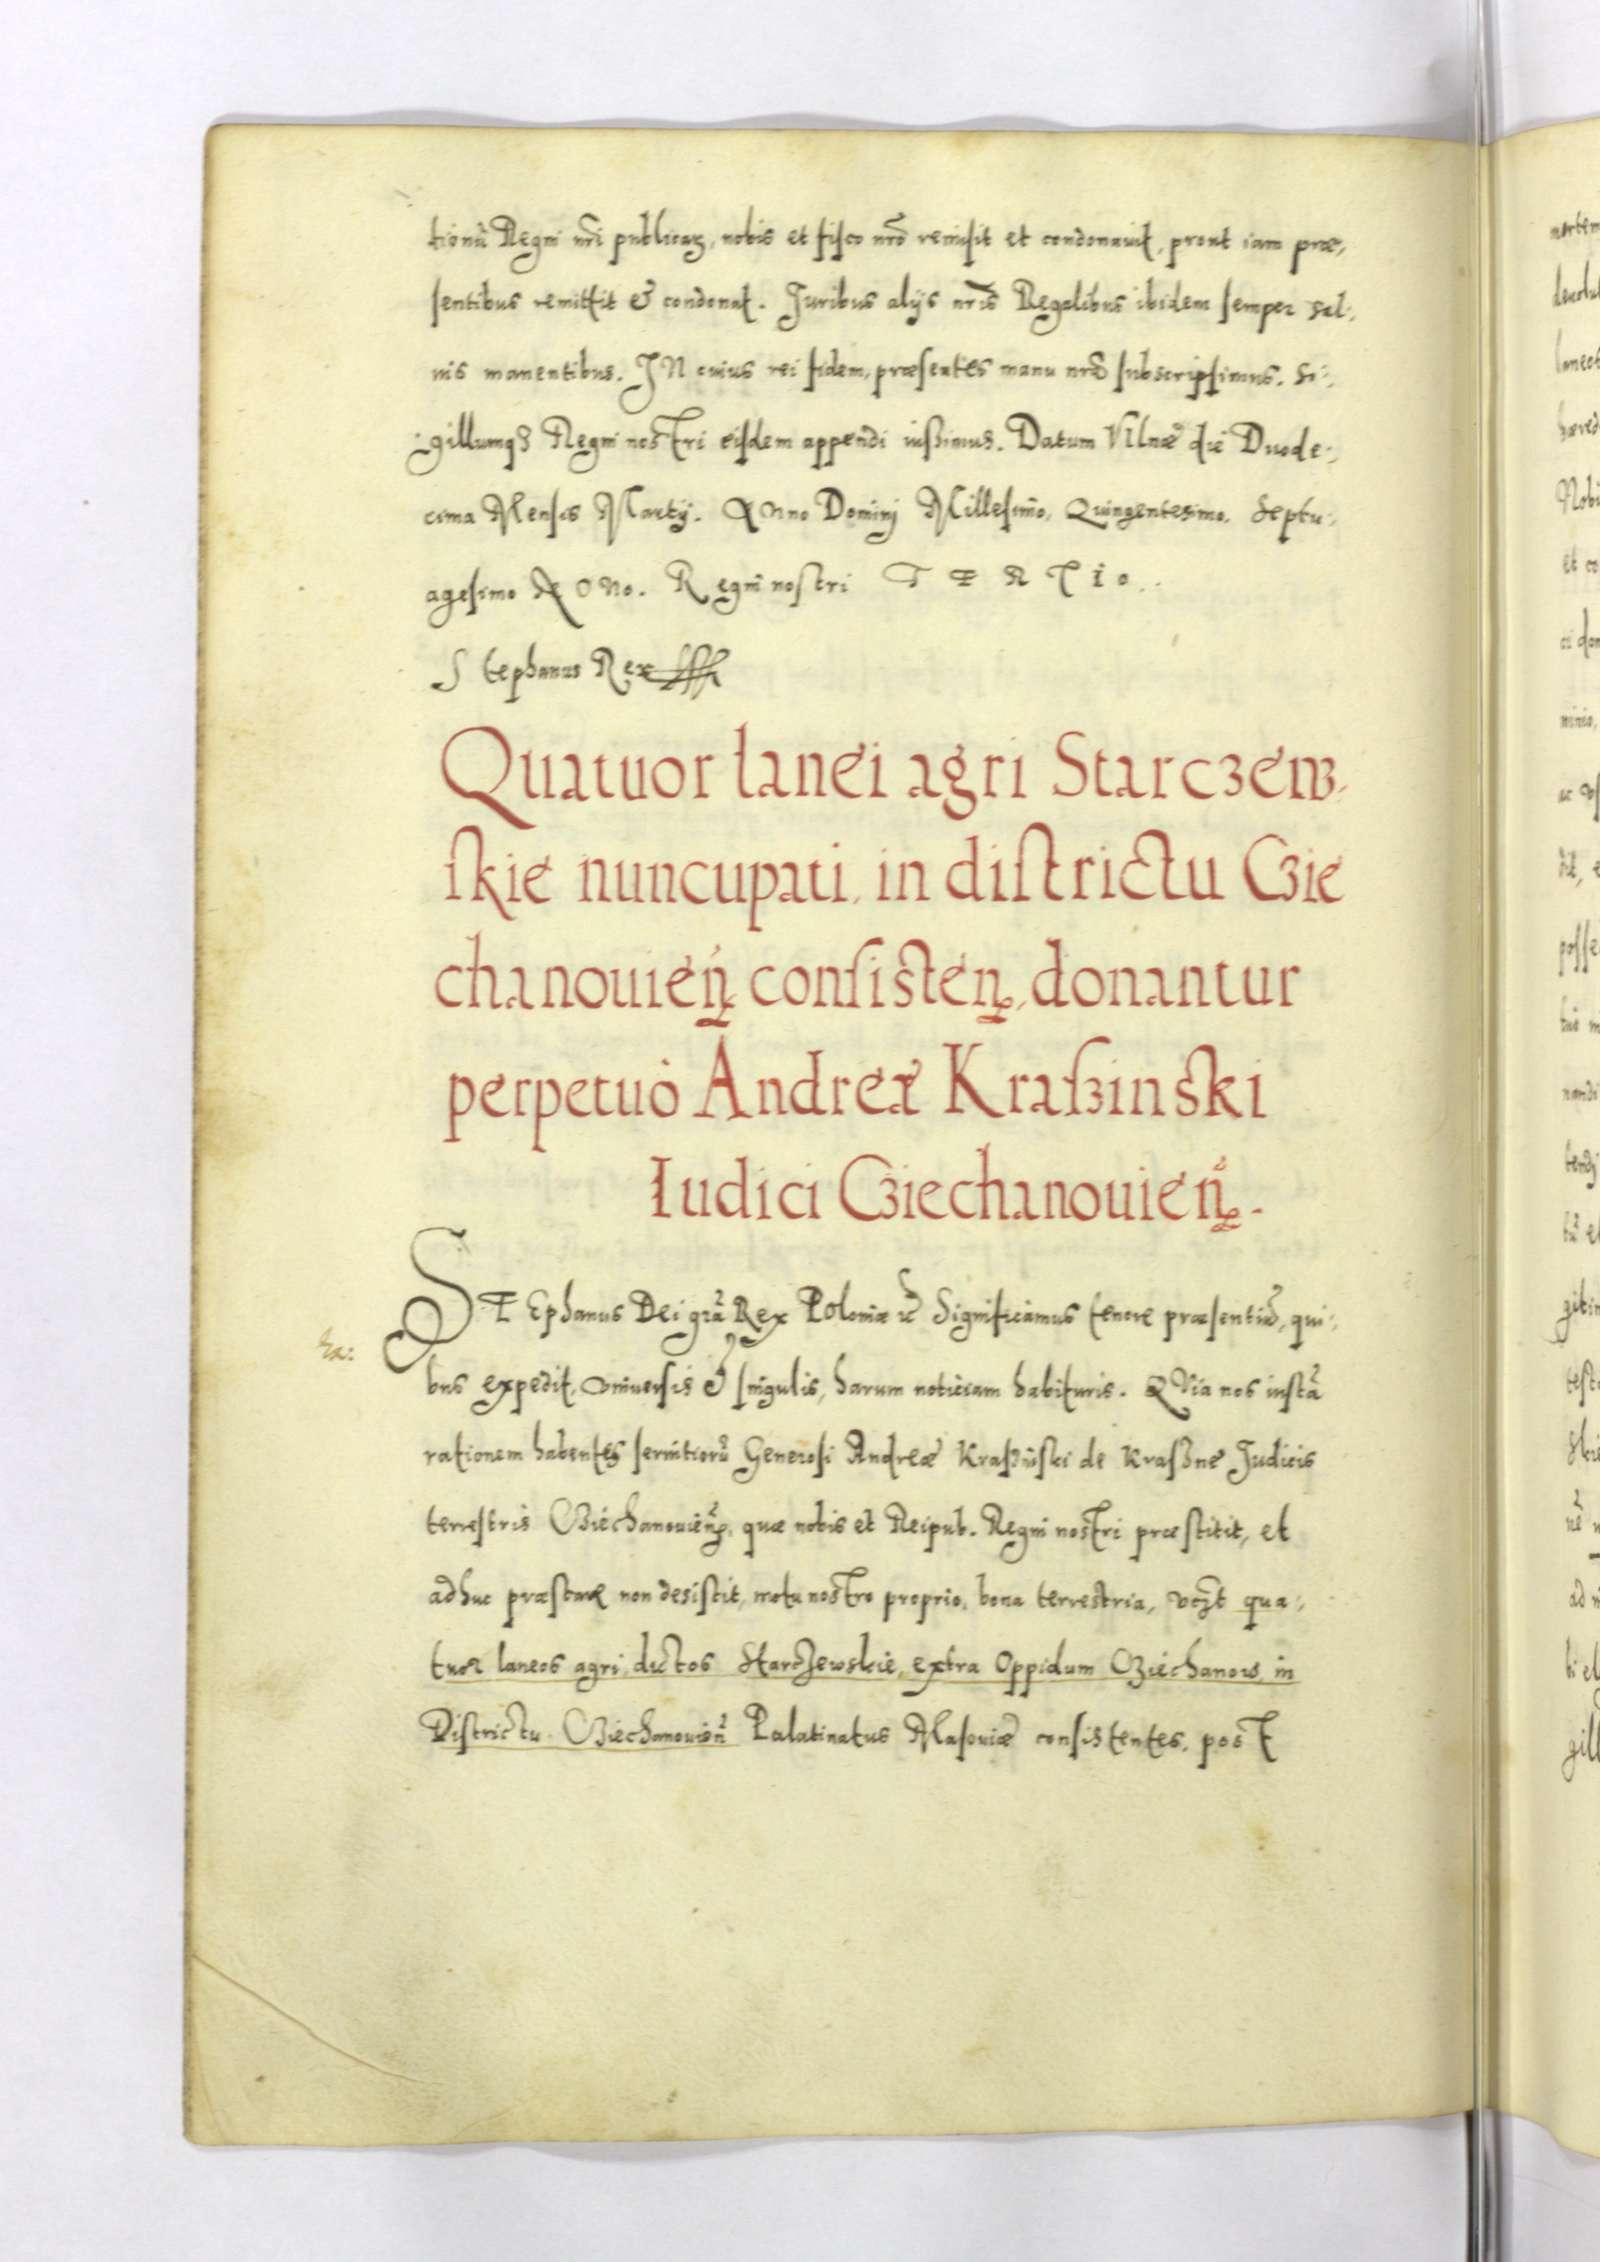 tionũ Regni nr̃i publicaȝ, nobis et fisco nrõ remisit et condonauit, prout iam præ,
sentibus remittit & condonat. Juribus alijs nrĩs Regalibus ibidem semper sal:,
uis manentibus. IN cuius rei fidem, præsentes manu nrã subscripsimus. Si:,
gillumq3 Regni nostri eisdem appendi iussimus. Datum Vilnæ die Duode:,
cima Mensis Martij. Anno Dominj Millesimo, Quingentesimo, Septu:,
agesimo NONo. Regni nostri TERTIo.
Stephanus Rex
Quatuor lanei agri Starczew,
skie nuncupati, in districtu Czie
chanouieñ consisteñ, donantur
perpetuò Andreæ Kraszinski
Iudici Cziechanouieñ.
STEphanus Dei grã Rex Poloniæ &c Significamus tenore præsentiũ, qui:,
bus expedit, vniuersis & singulis, harum noticiam habituris. QVia nos iustã
rationem habentes seruitiorũ Generosi Andreæ Kraszinski de Kraszne Judicis
terrestris Cziechanouieñ, quæ nobis et Reipub. Regni nostri præstitit, et
adhuc præstare non desistit, motu nostro proprio, bona terrestria, vcȝt qua:,
tuor laneos agri dictos Starczewskie, extra Oppidum Cziechanow in
Districtu Cziechanouieñ Palatinatus Masouiæ consistentes, post